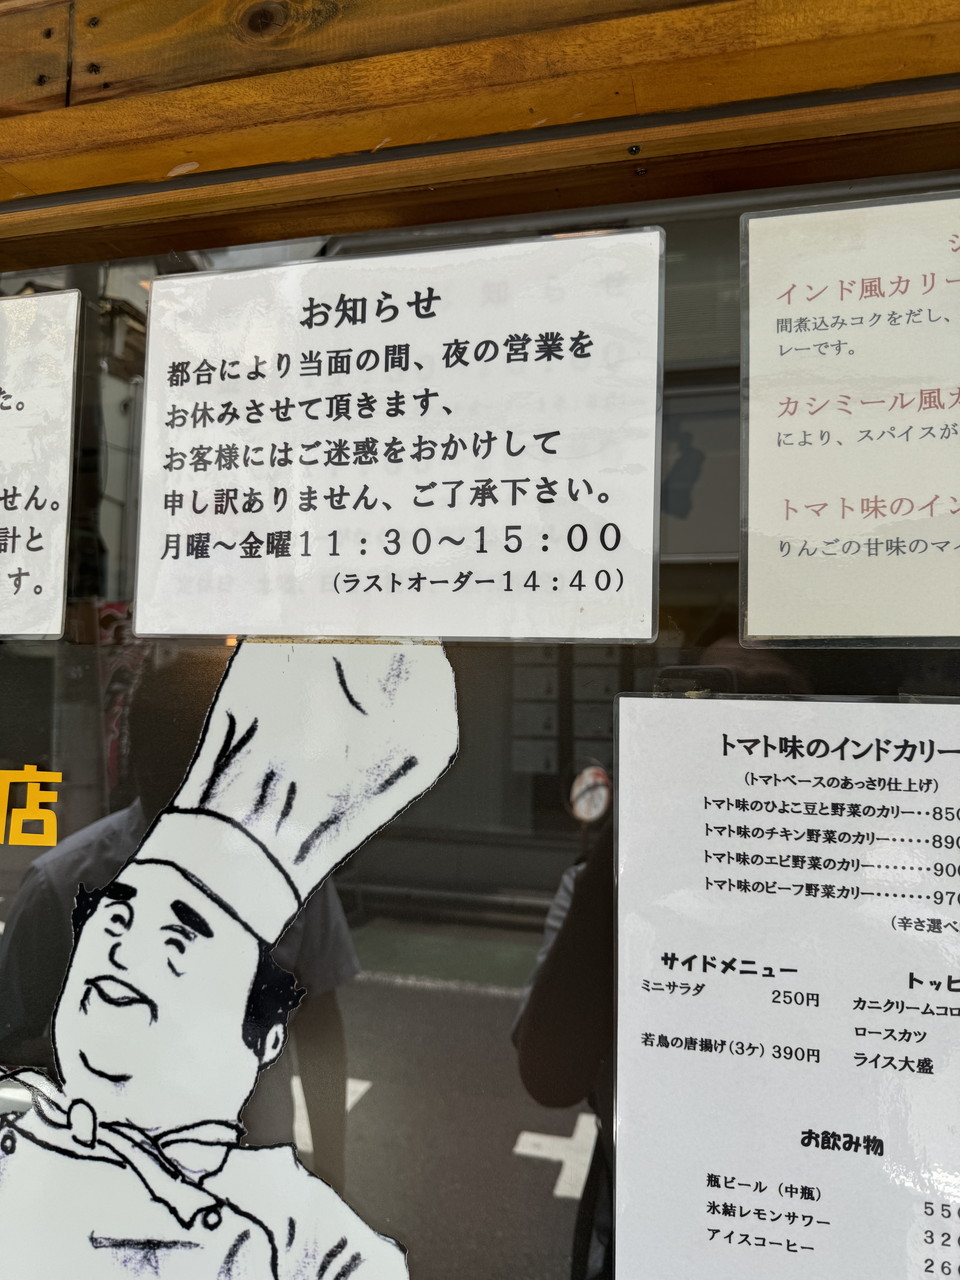 た。
せん。
計と
す。
お知らせ
都合により当面の間、夜の営業を
お休みさせて頂きます、
お客様にはご迷惑をおかけして
申し訳ありません、ご了承下さい。
月曜～金曜11：30～15：00
(ラストオーダー14：40)
インド風カリー
間煮込みコクをだし、
レーです。
カシミール風カ
により、スパイスが
トマト味のイン
りんごの甘味のマイ
店
トマト味のインドカリー
(トマトベースのあっさり仕上げ)
トマト味のひよこ豆と野菜のカリー‥850
トマト味のチキン野菜のカリー‥‥‥890
トマト味のエビ野菜のカリー‥‥‥‥900
トマト味のビーフ野菜カリー‥‥‥‥970
(辛さ選べ
サイドメニュー
ミニサラダ 250円
若鳥の唐揚げ(3ケ) 390円
トッピ
カニクリームコロ
ロースカツ
ライス大盛
お飲み物
瓶ビール（中瓶） 550
氷結レモンサワー 320
アイスコーヒー 260